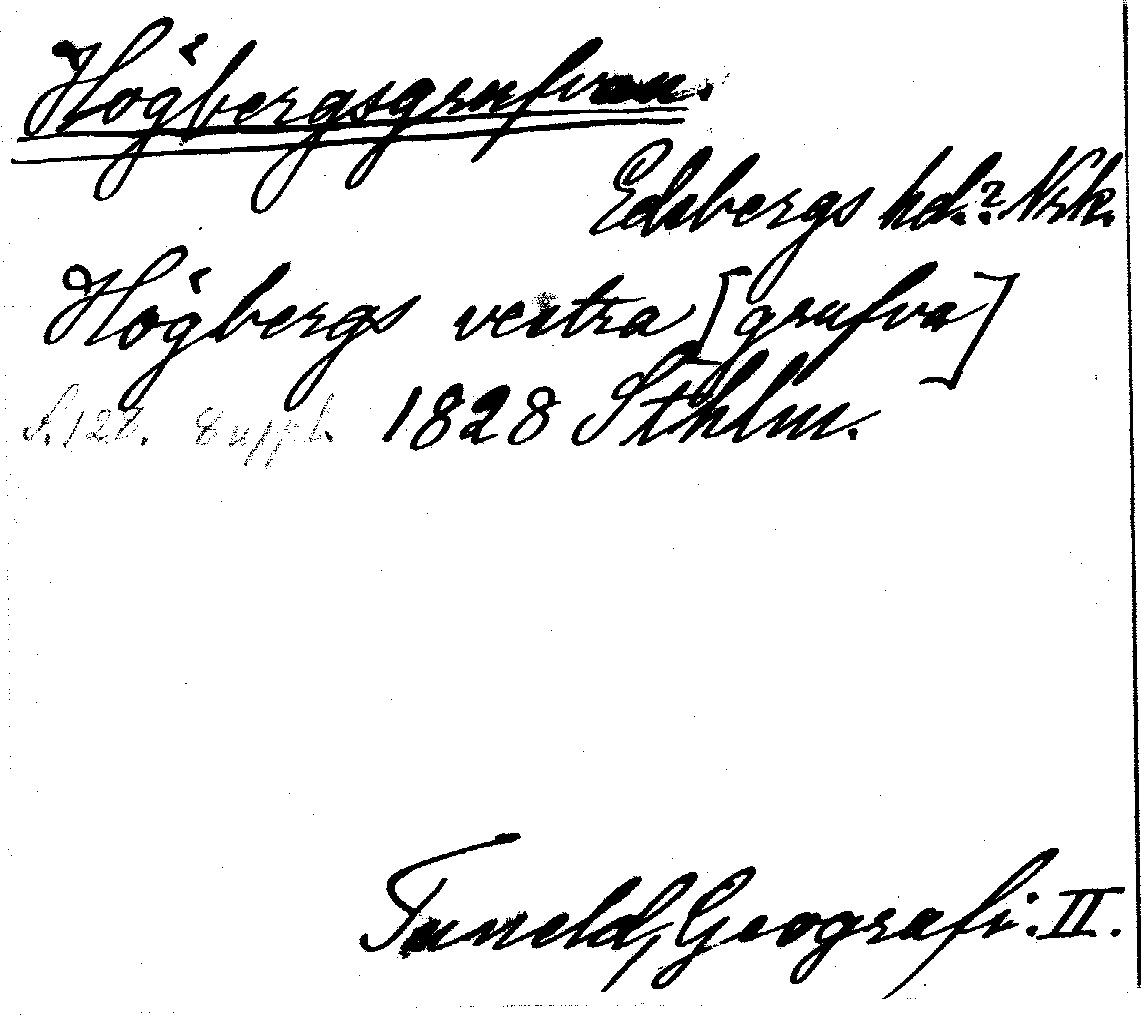 Högbergsgrufvan.
Edsbergs hd.? Nrk.
Högbergs vestra [grufva]
S. 128. Suppl. 1828 Sthlm.
Tuneld, Geografi. II.